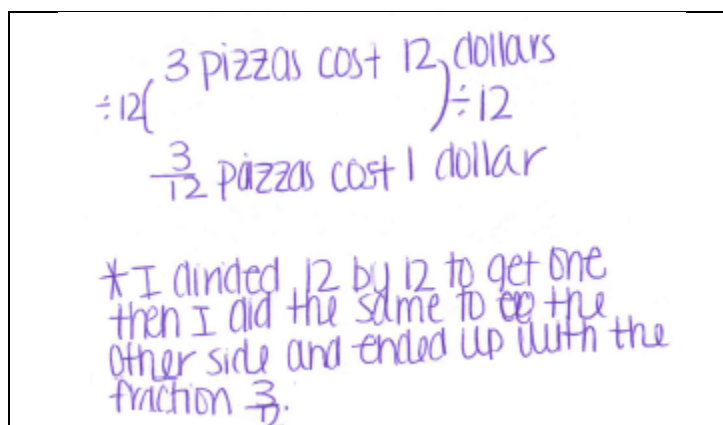 3 pizzas cost 12 dollars
÷12( )÷12
3/12 pizzas cost 1 dollar
*I divided 12 by 12 to get one
then I did the same to the
other side and ended up with the
fraction 3/12.